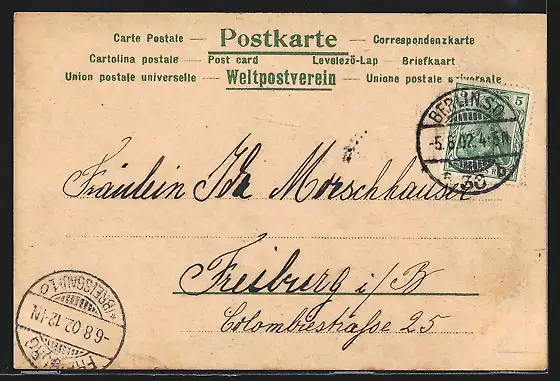 Carte Postale — Postkarte — Correspondenzkarte
Cartolina postale — Post card Levelező-Lap — Briefkaart
Union postale universelle — Weltpostverein — Unione postale universale
5
BERLIN S.O.
-5.8.02.4-5N
* 36
Fräulein Ida Morschhauser
Freiburg i/B
Colombiestraße 25
FREIBURG
-6.8.02.12-1N
*(BREISGAU)1.o